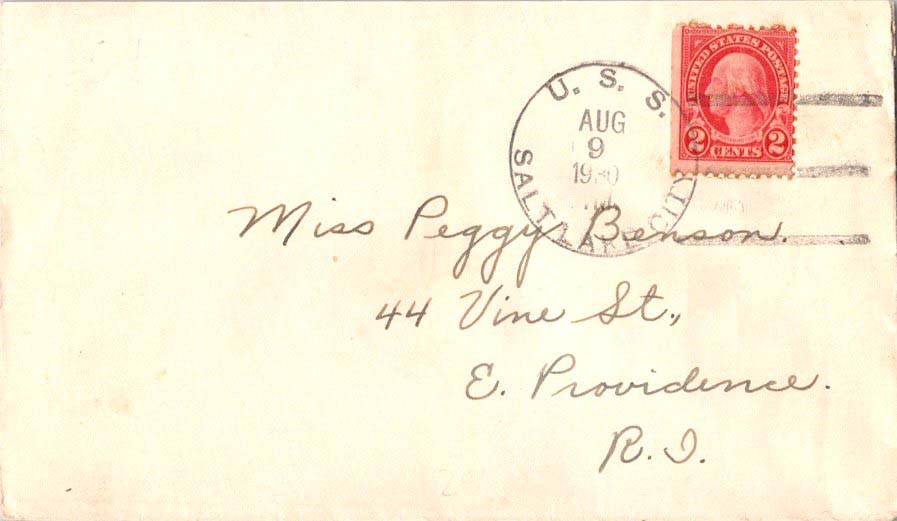 UNITED STATES POSTAGE
2 CENTS 2
U. S. S.
SALT LAKE CITY
AUG
9
1930
Miss Peggy Benson.
44 Vine St.,
E. Providence.
R. I.